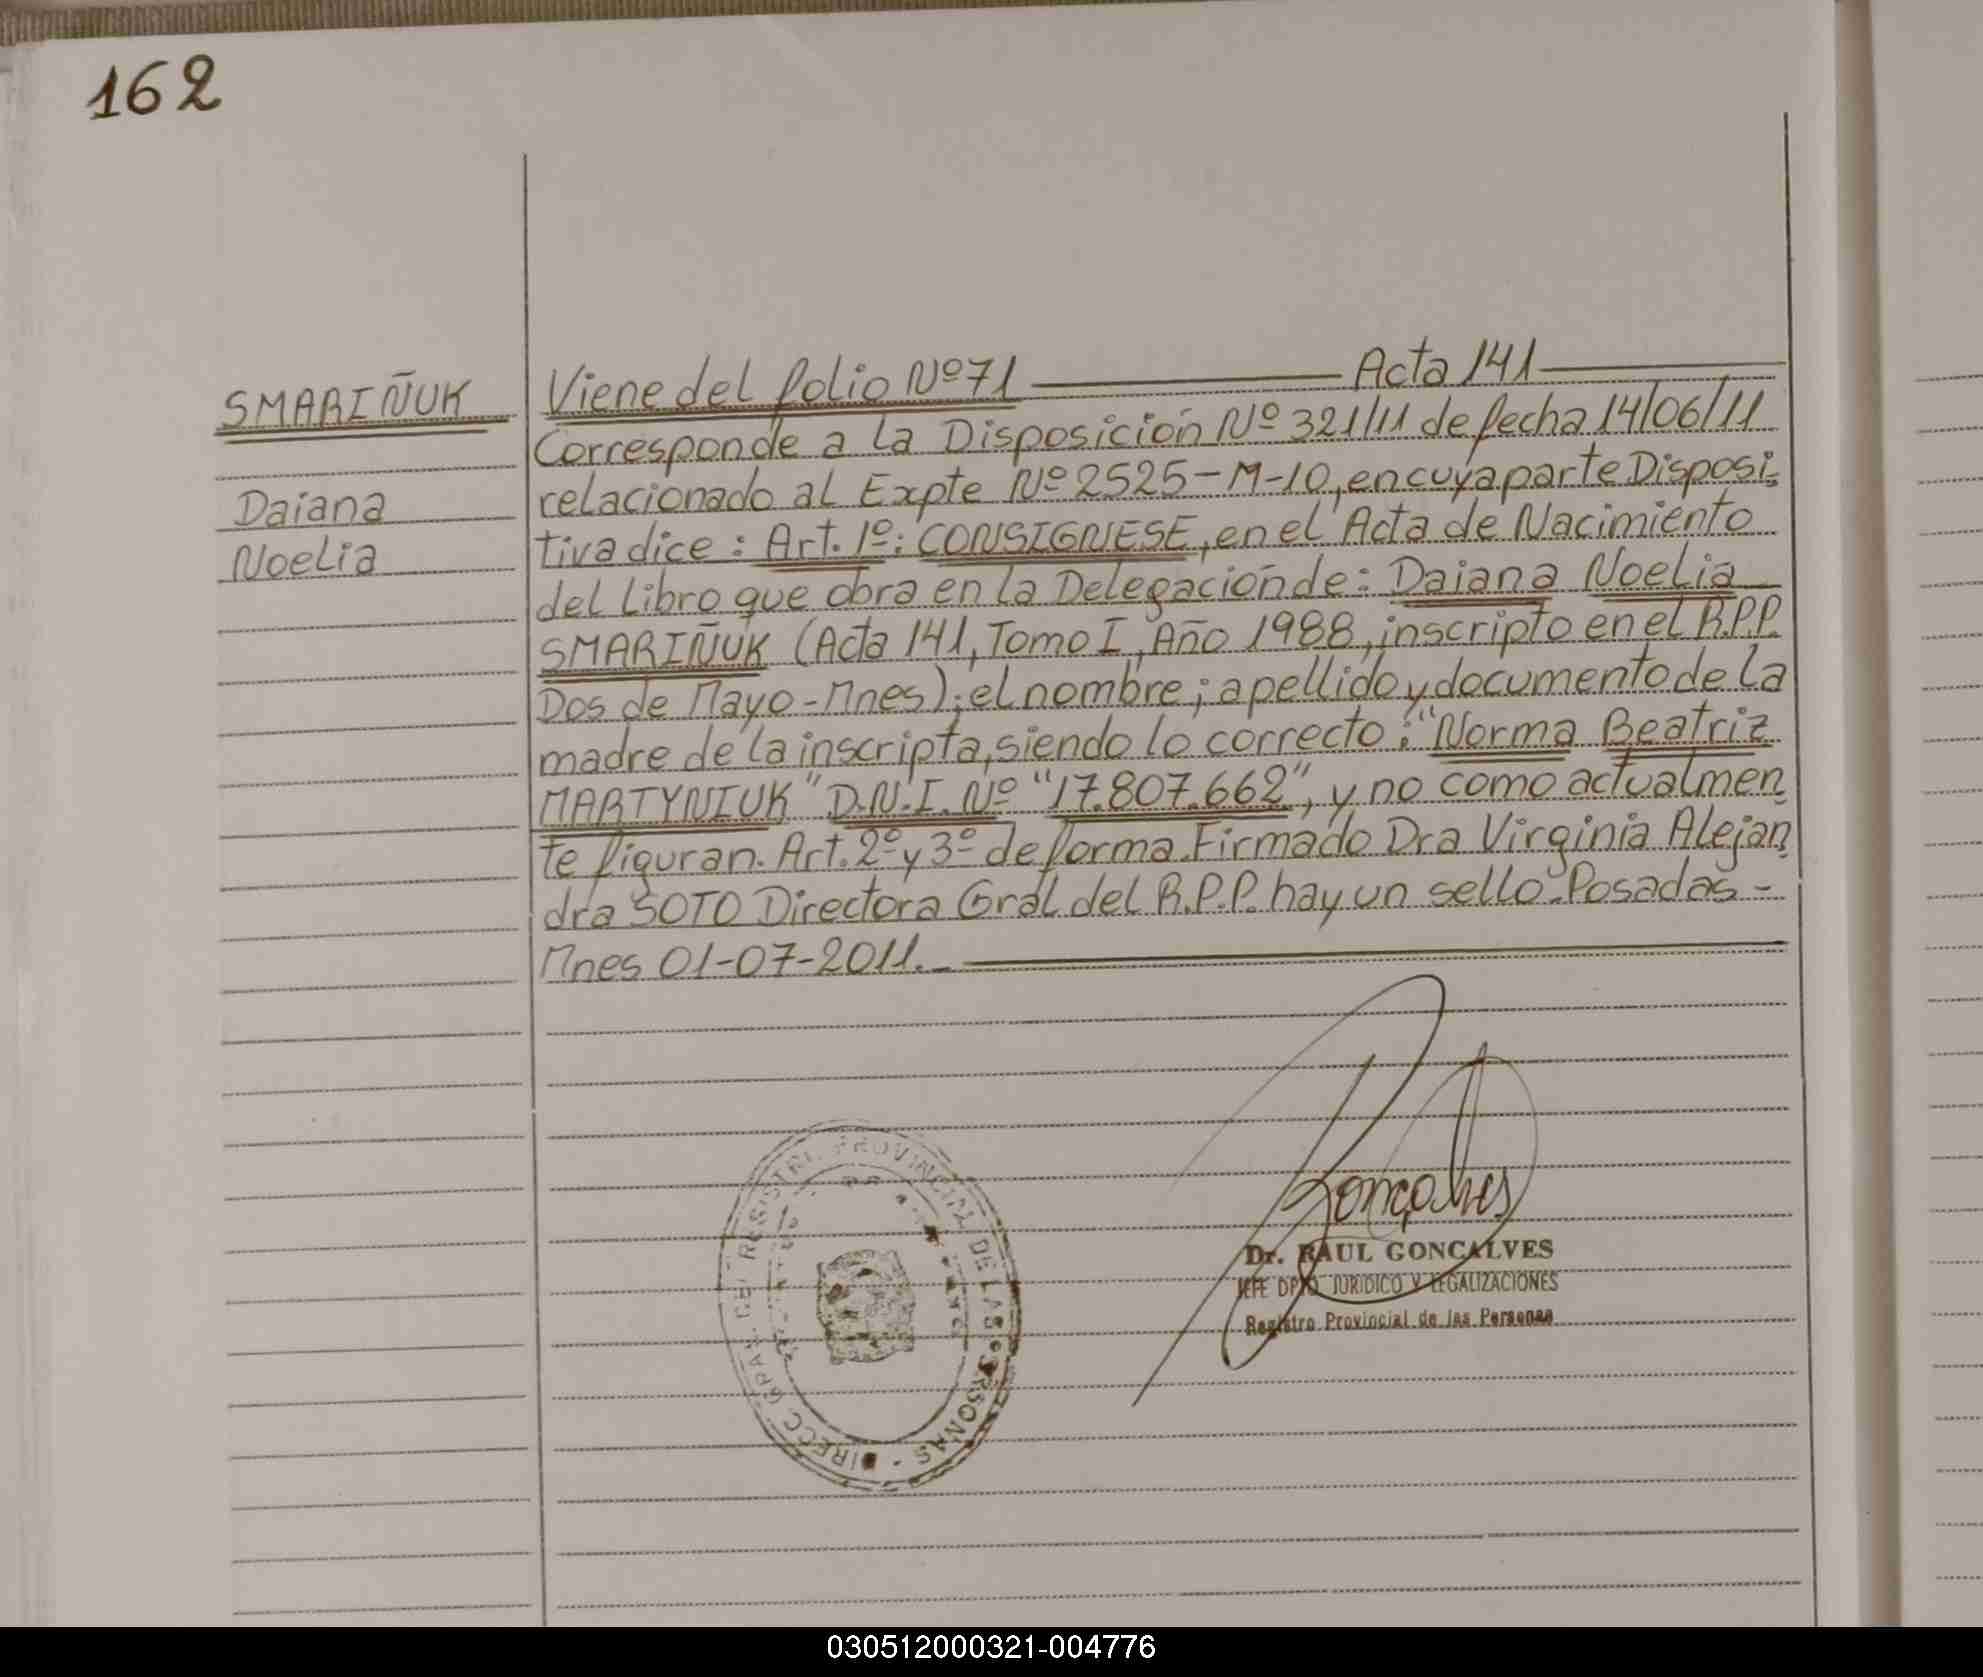 162
SMARIÑUK
Daiana
Noelia
Viene del folio Nº 71 Acta 141
Corresponde a la Disposición Nº 321/11 de fecha 14/06/11
relacionado al Expte Nº 2525-M-10, en cuya parte Disposi-
tiva dice: Art. 1º: CONSIGNESE, en el Acta de Nacimiento
del Libro que obra en la Delegación de: Daiana Noelia
SMARIÑUK (Acta 141, Tomo I, Año 1988, inscripto en el R.P.P.
Dos de Mayo-Mnes); el nombre; apellido y documento de la
madre de la inscripta, siendo lo correcto: "Norma Beatriz
MARTYNIUK" D.N.I. Nº "17.807.662", y no como actualmen-
te figuran. Art. 2º y 3º de forma. Firmado Dra Virginia Alejan-
dra SOTO Directora Gral del R.P.P. hay un sello. Posadas-
Mnes 01-07-2011.-
Goncalves
Dr. RAUL GONCALVES
JEFE DPTO JURIDICO Y LEGALIZACIONES
Registro Provincial de las Personas
DIRECC GRAL DEL REGISTRO PROVINCIAL DE LAS PERSONAS
030512000321-004776